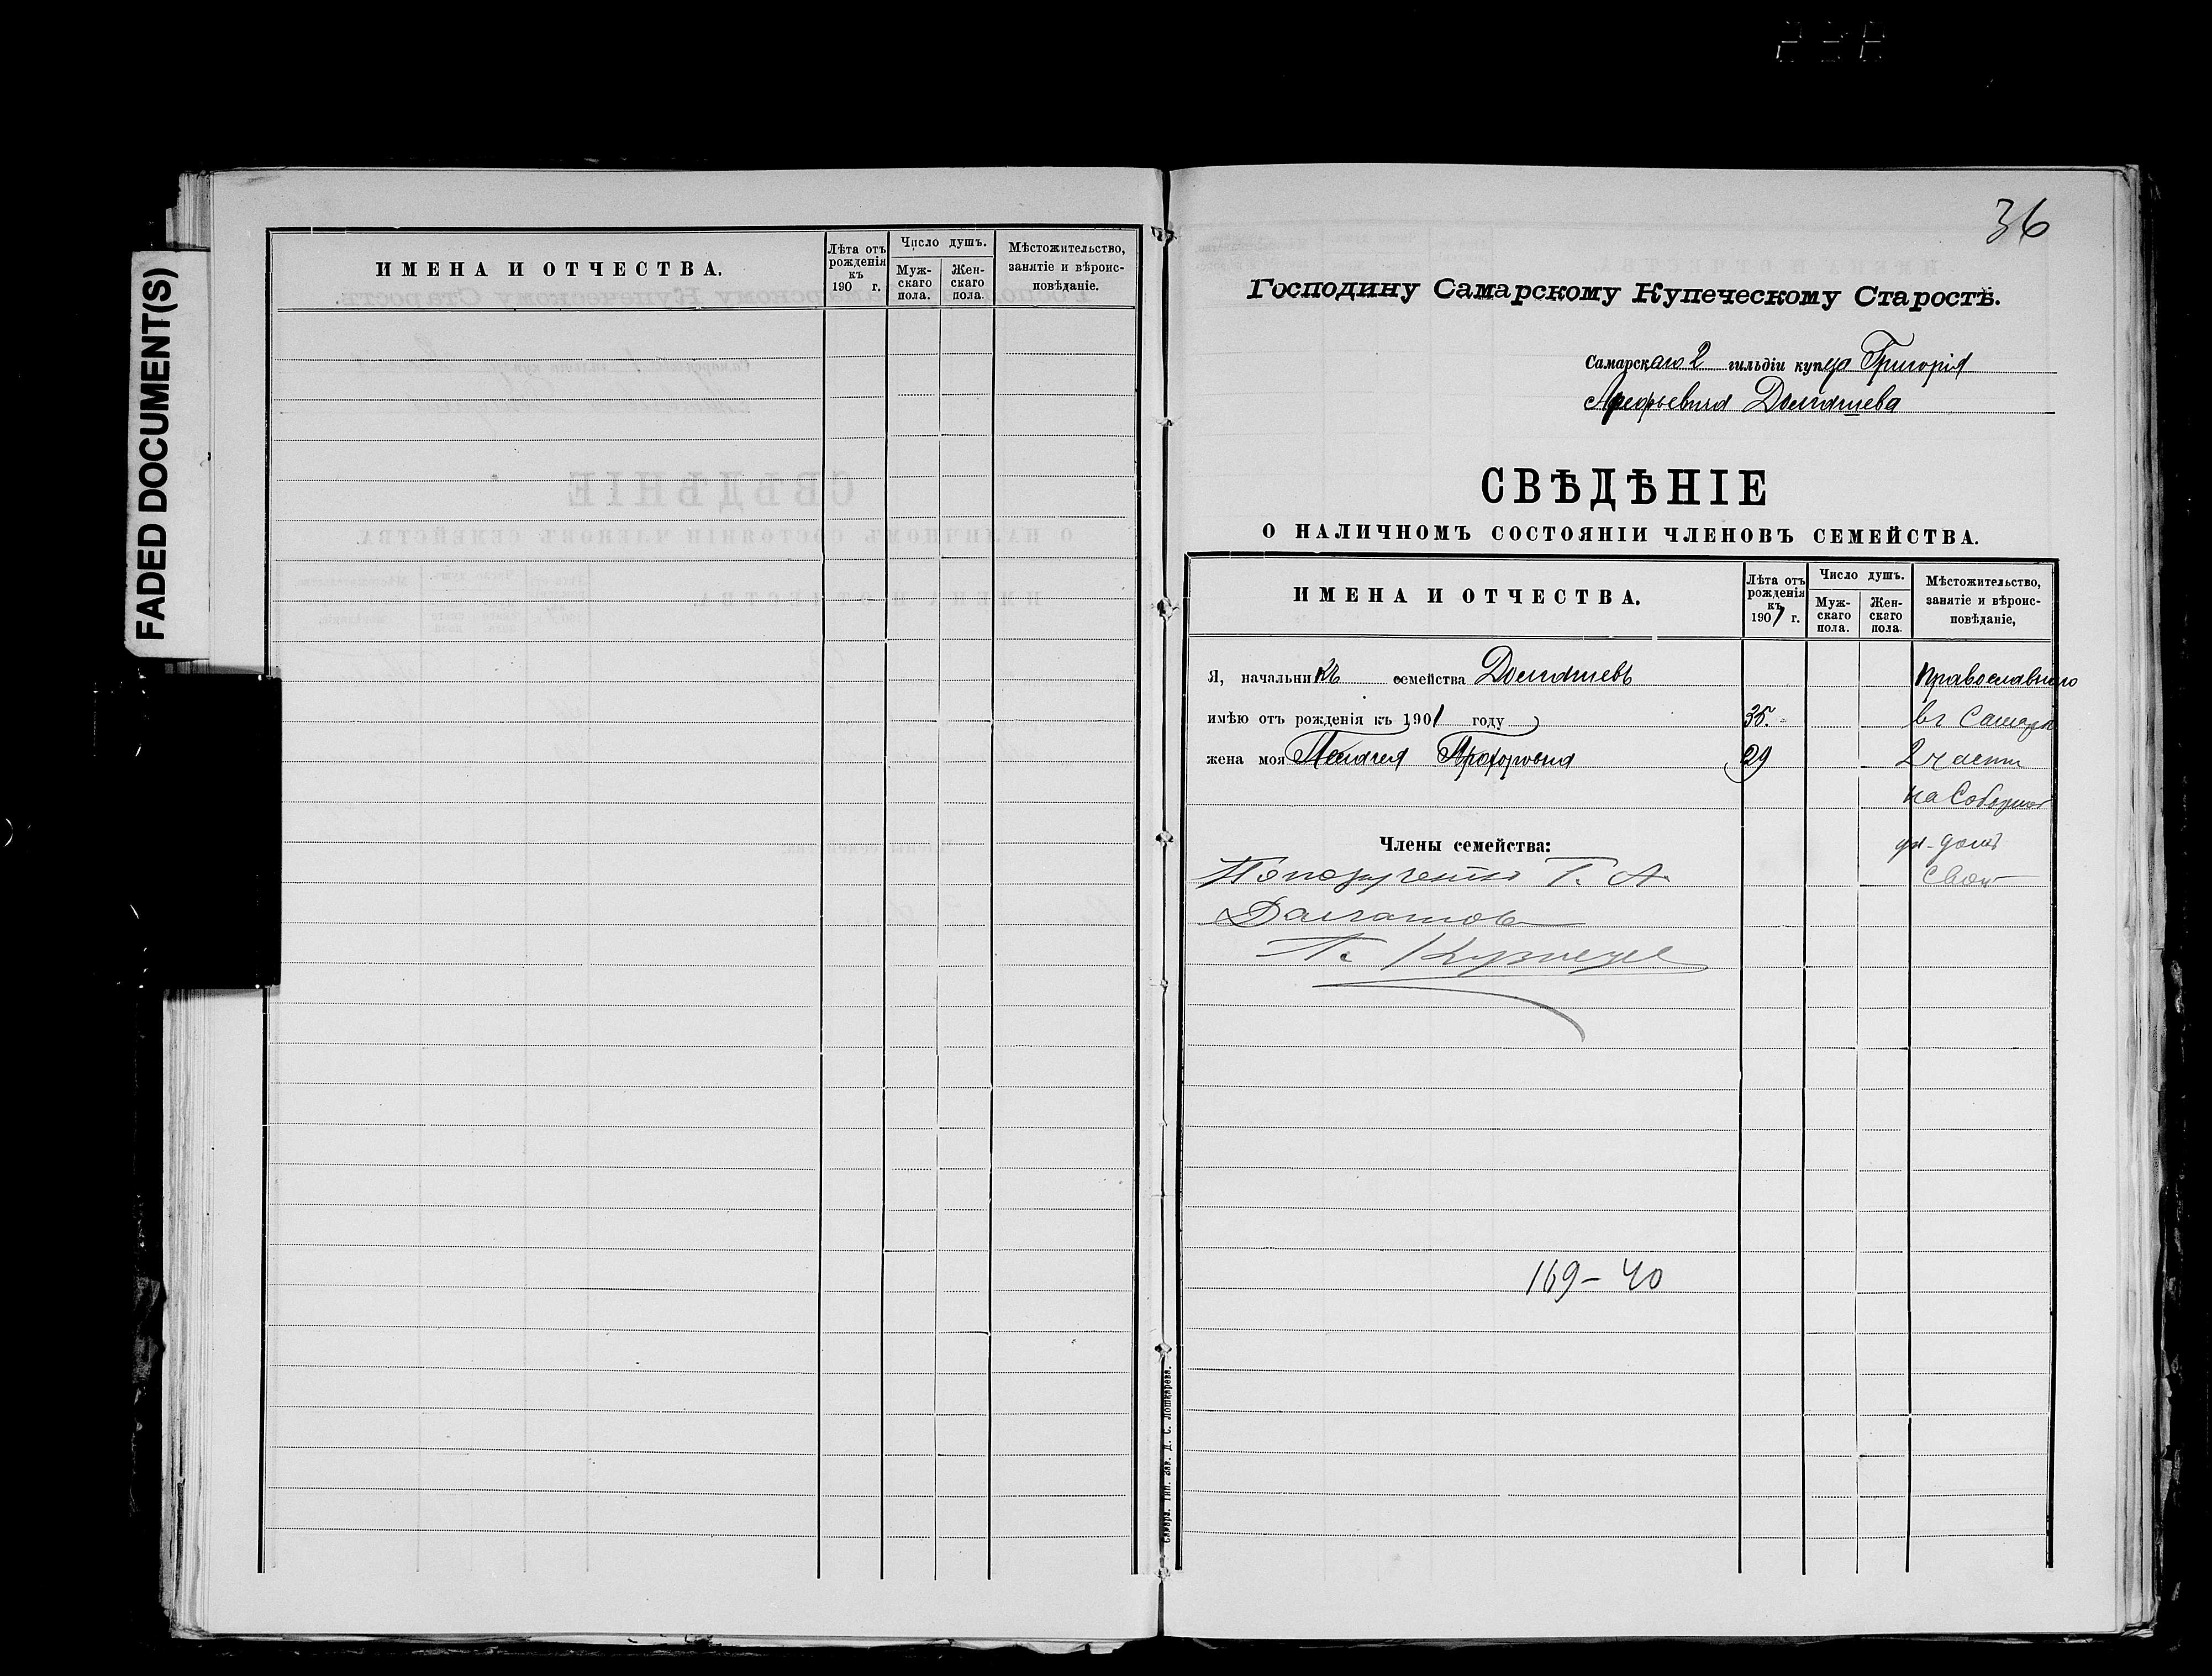 FADED DOCUMENT(S)
ИМЕНА И ОТЧЕСТВА.
Лѣта отъ рожденія къ 190 г.
Число душъ.
Муж-скаго пола.
Жен-скаго пола.
Мѣстожительство, занятіе и вѣроис-повѣданіе.
36
Господину Самарскому Купеческому Старостѣ.
Самарскаго 2 гильдіи купца Григорія
Долгашева
СВѢДѢНІЕ
О НАЛИЧНОМЪ СОСТОЯНІИ ЧЛЕНОВЪ СЕМЕЙСТВА.
ИМЕНА И ОТЧЕСТВА.
Лѣта отъ рожденія къ 1907 г.
Число душъ.
Муж-скаго пола.
Жен-скаго пола.
Мѣстожительство, занятіе и вѣроис-повѣданіе,
Я, начальникъ семейства Долгашевъ
Православного
имѣю отъ рожденія къ 1901 году 35.
въ Самарѣ
жена моя Пелагея Прохоровна 29
2 части
на Соборной
ул. домъ
Члены семейства:
свой
По Г. А.
Далгашов
П. Кузнецо
169-40
Самара. Тип. Зав. Д. С. Лошкарева.